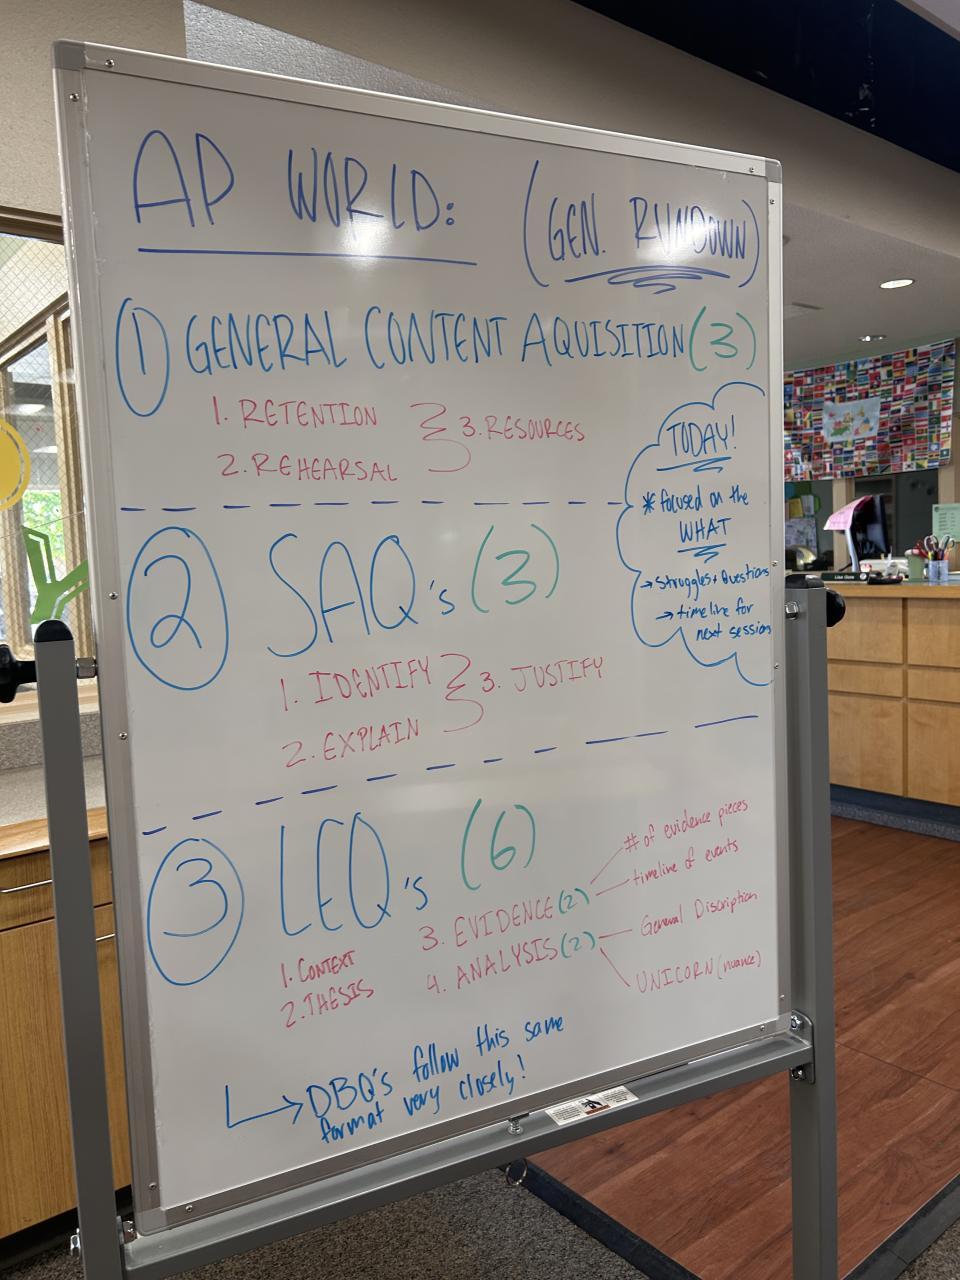 AP WORLD: (GEN. RUNDOWN)
① GENERAL CONTENT AQUISITION (3)
1. RETENTION
2. REHEARSAL
3. RESOURCES
TODAY!
* focused on the
WHAT
→ Struggles + Questions
→ timeline for
next session
② SAQ's (3)
1. IDENTIFY
2. EXPLAIN
3. JUSTIFY
③ LEQ's (6)
1. CONTEXT
2. THESIS
3. EVIDENCE (2)
# of evidence pieces
timeline of events
4. ANALYSIS (2)
General Discription
UNICORN (nuance)
→ DBQ's follow this same
format very closely!